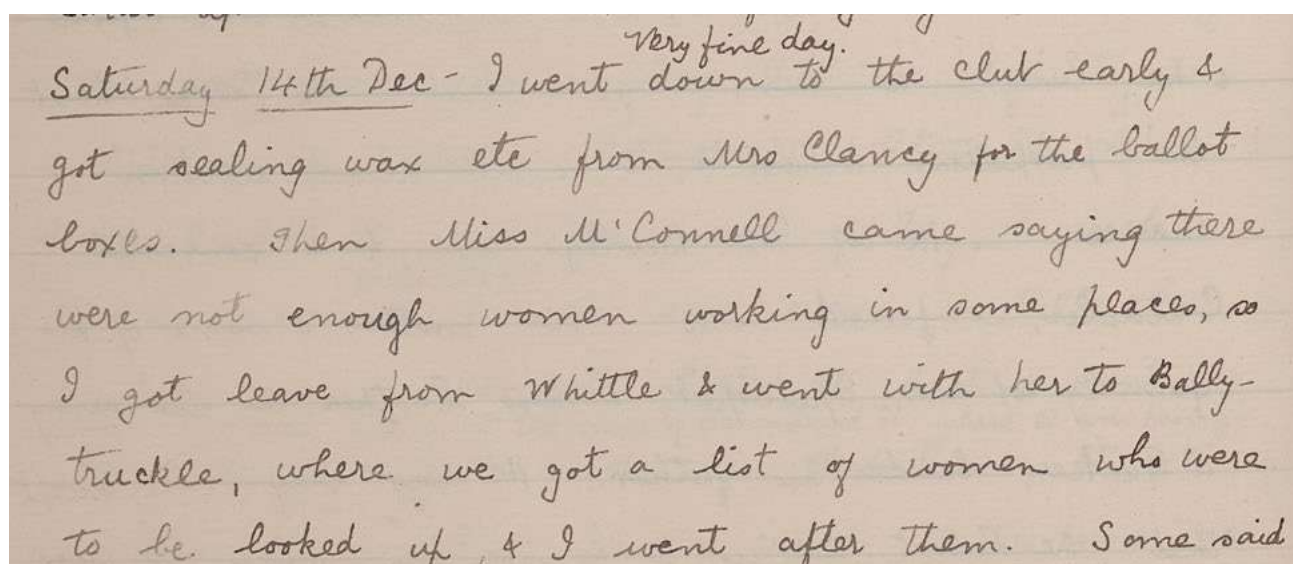 Very fine day.
Saturday 14th Dec - I went down to the club early &
got sealing wax etc from Mrs Clancy for the ballot
boxes. Then Miss M'Connell came saying there
were not enough women working in some places, so
I got leave from Whittle & went with her to Bally-
truckle, where we got a list of women who were
to be looked up, & I went after them. Some said